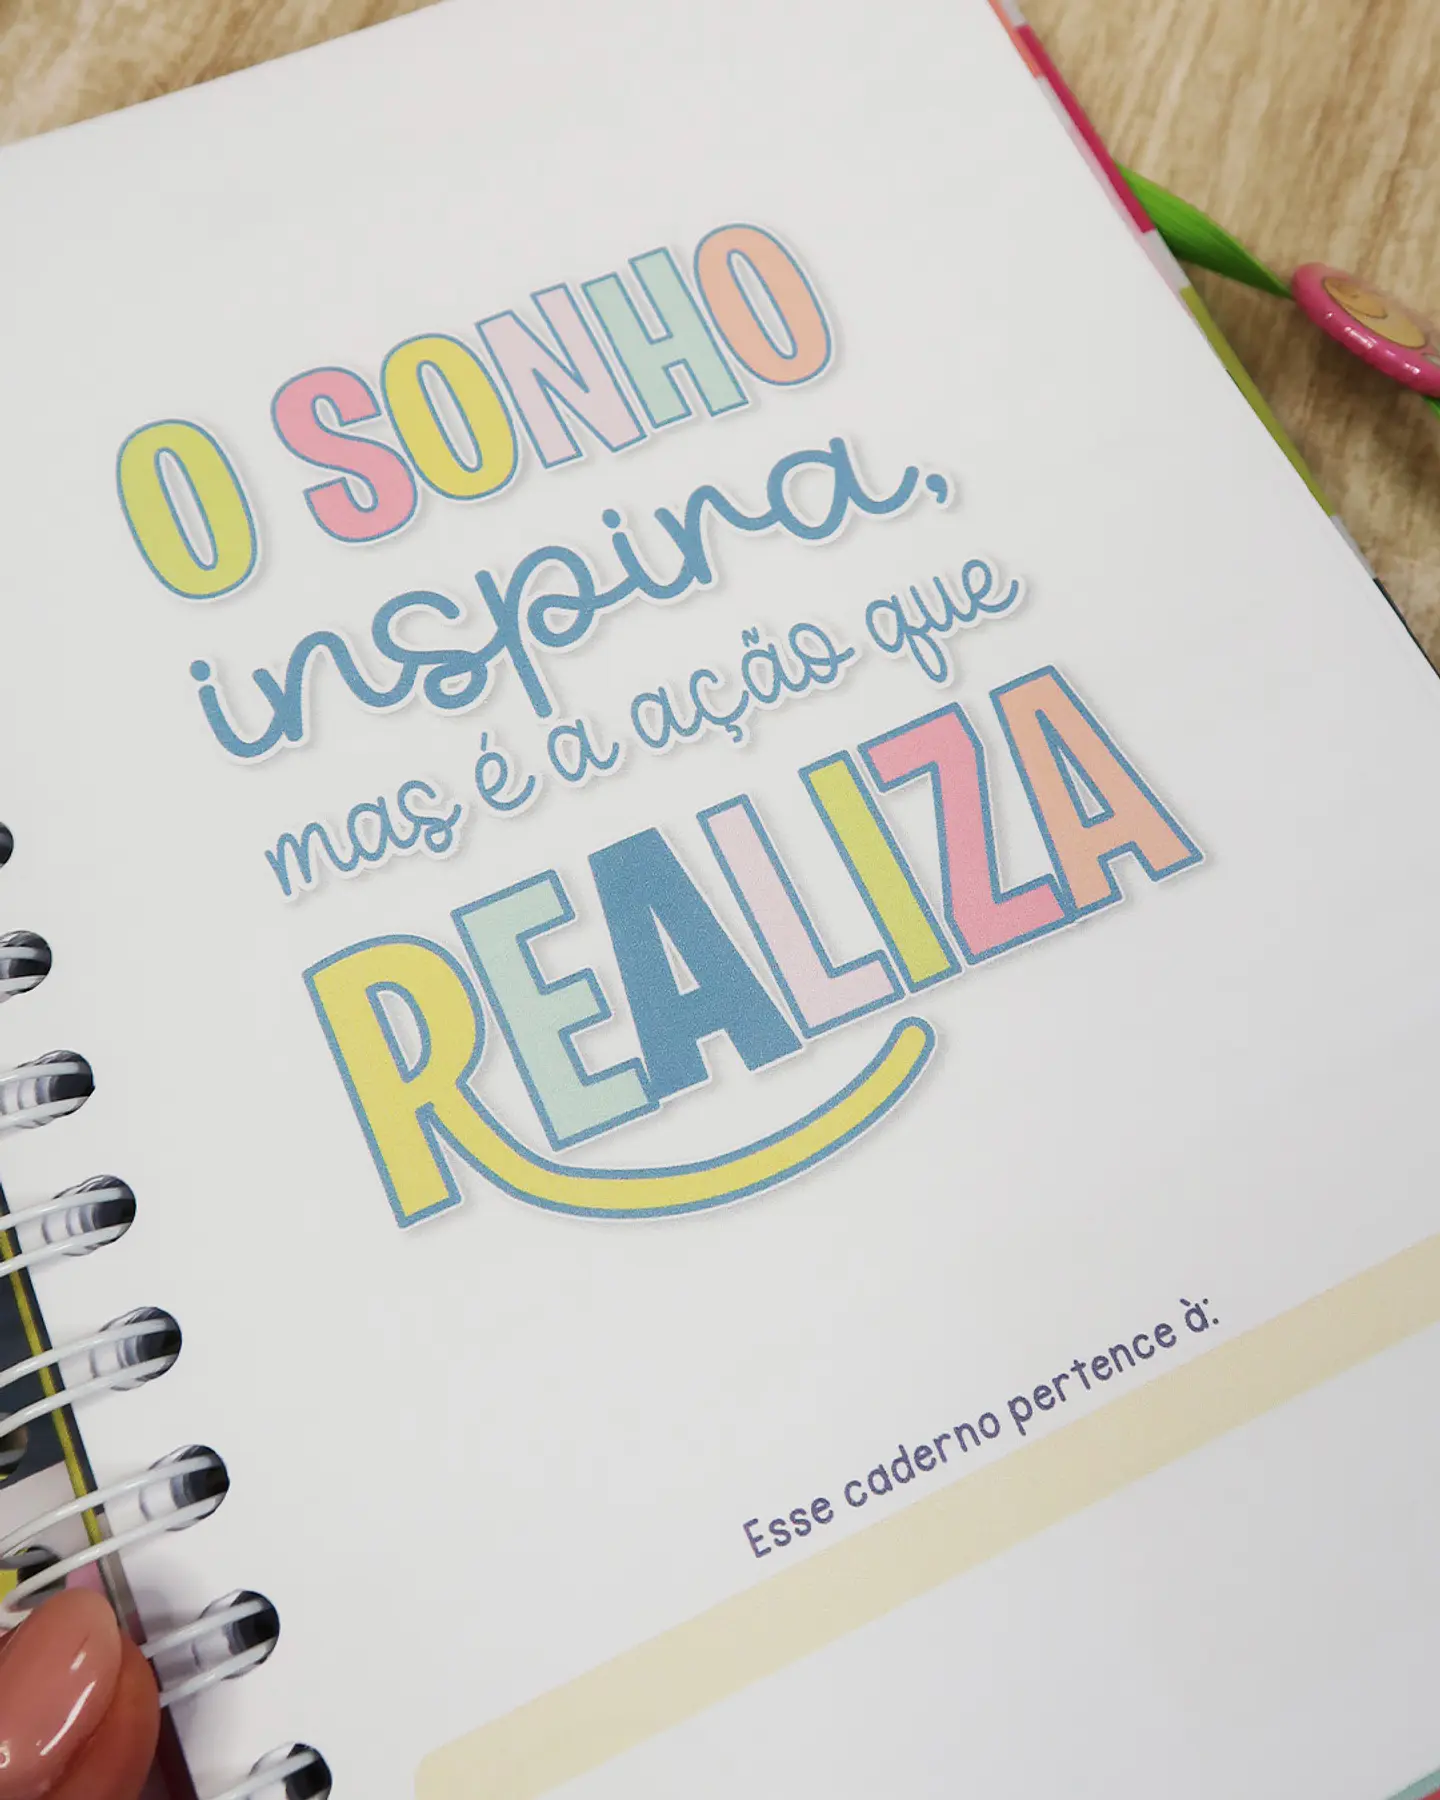 O SONHO
inspira,
mas é a ação que
REALIZA
Esse caderno pertence à: